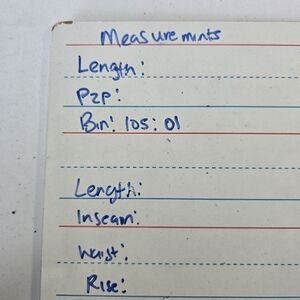 Measuremints
Length:
P2P:
Bin: 105: 01
Length:
Inseam:
Waist:
Rise: